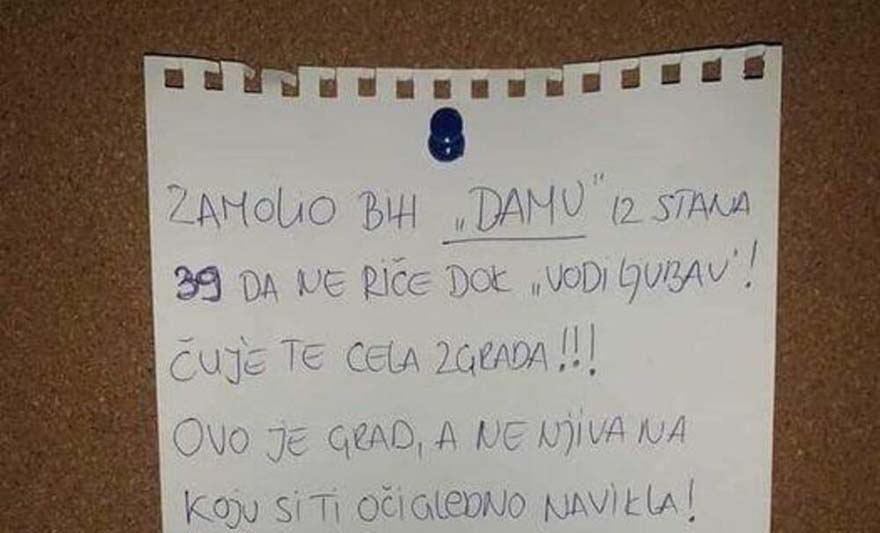 ZAMOLIO BIH „DAMU" IZ STANA
39 DA NE RIČE DOK „VODI LJUBAV"!
ČUJE TE CELA ZGRADA!!!
OVO JE GRAD, A NE NJIVA NA
KOJU SI TI OČIGLEDNO NAVIKLA!